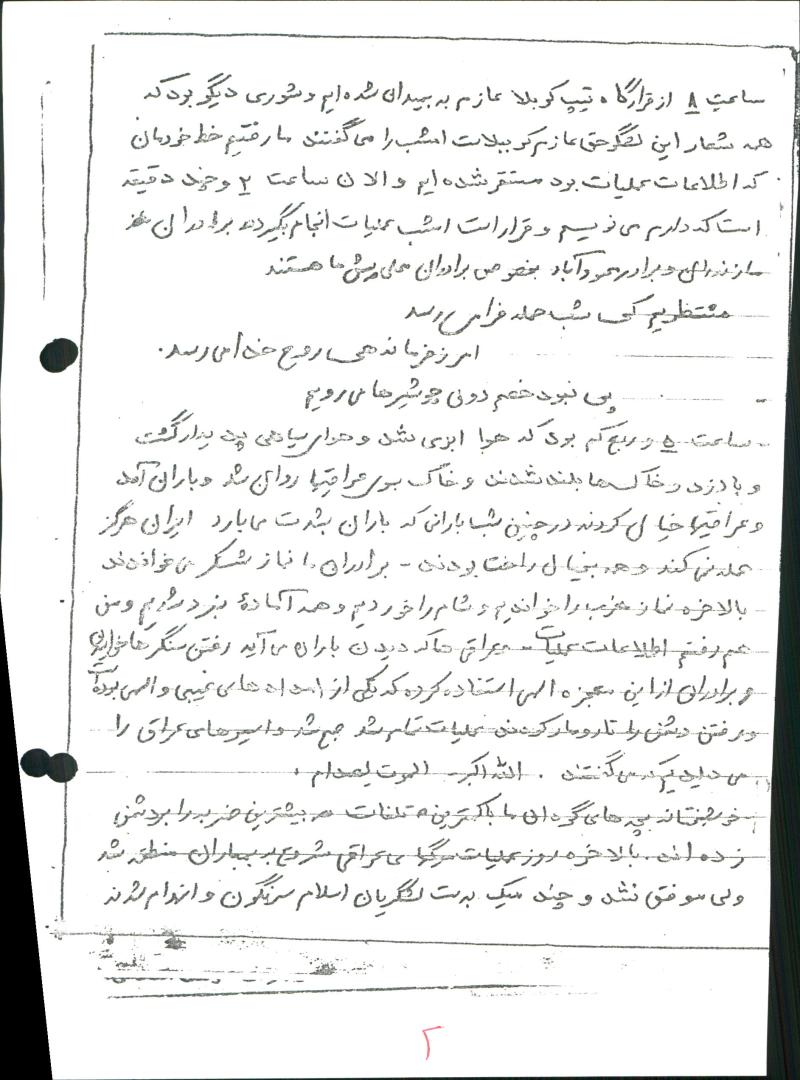 ساعت ۸ از قرارگاه تیپ کربلا عازم به میدان شده ایم و شوری دیگر بود که
همه شعار این لشگر حق عازم کربلاست امشب را می گفتند ما رفتیم خط خودمان
که اطلاعات عملیات بود مستقر شده ایم و الان ساعت ۲ و چند دقیقه
است که دارم می نویسم و قرار است امشب عملیات انجام بگیرد برادران
مازندرانی و برادر محمودآباد بخصوص برادران محلی پیش ما هستند
منتظریم کی شب حمله فرا می رسد
امر ز فرماندهی روح خدا می رسد.
پی نبود خصم دونی چو شیرها می رویم
ساعت ۵ و ربع کم بود که هوا ابری شد و هوای سیاهی پدیدار گشت
و باد زد و خاک ها بلند شدند و خاک بسوی عراقیها روان شد و باران آمد
و عراقیها خیال کردند در چنین شب بارانی که باران بشدت می بارد ایران هرگز
حمله نمی کند و همه بخیال راحت بودند - برادران ما نماز شکر می خواندند
بالاخره نماز مغرب را خواندیم و شام را خوردیم و همه آماده نبرد شدیم و من
هم رفتم اطلاعات عملیات - عراقی ها که دیدن باران می آید رفتن سنگرها خوابیدن
و برادران از این معجزه الهی استفاده کرده که یکی از امدادهای غیبی و الهی بوده
و رفتن دشمن را تارومار کردند عملیات تمام شد صبح شد و اسیرهای عراق را
می دیدیم که می گفتند . الله اکبر - الموت لصدام .
خوشبختانه بچه های گردان ما با کمترین تلفات بیشترین ضربه را بر دشمن
زده اند. بالاخره روز عملیات میگهای عراقی شروع به بمباران منطقه شد
ولی موفق نشد و چند میگ بدست لشگریان اسلام سرنگون و انهدام شدند
۲